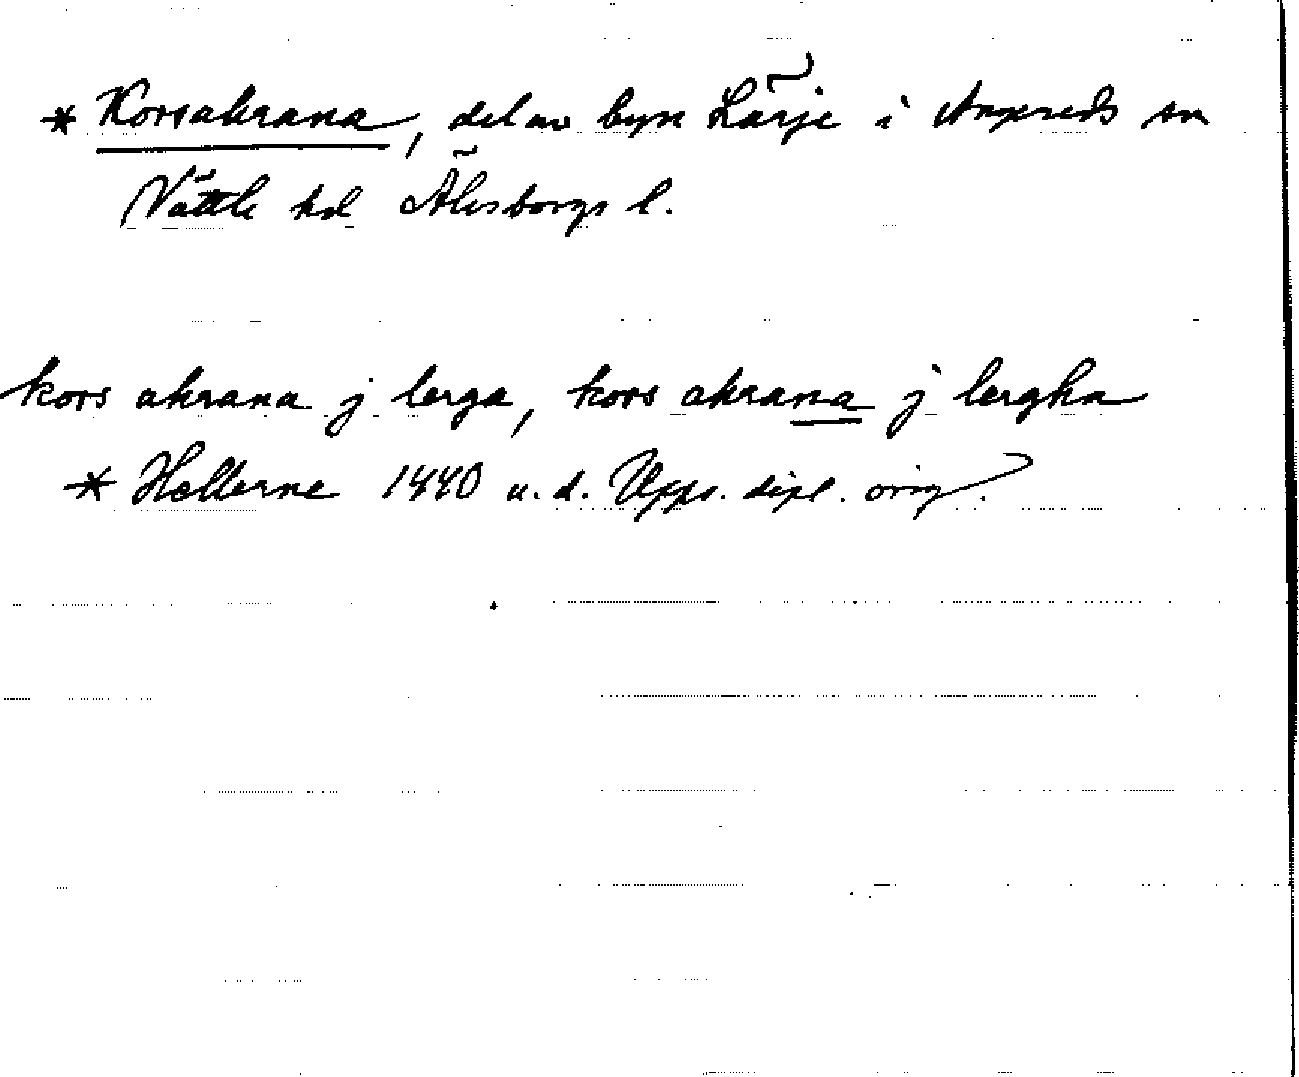 * Korsakrana, del av byn Lärje i Angereds sn
Vättle hd Älvsborgs l.
kors akrana j lerga, kors akrana j lergha
* Hællerne 1440 u. d. Upps. dipl. orig.